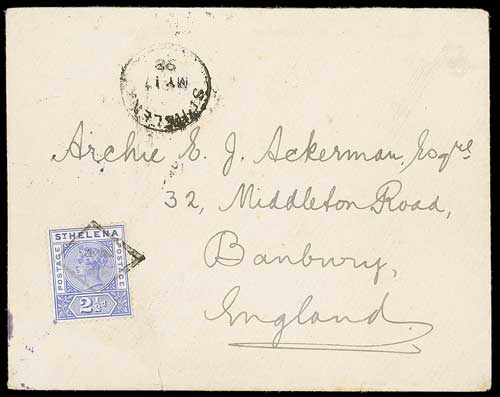 ST HELENA
MY 17
98
Archie E. J. Ackerman, Esqre
32, Middleton Road,
Banbury,
England.
ST HELENA
POSTAGE
POSTAGE
2½d